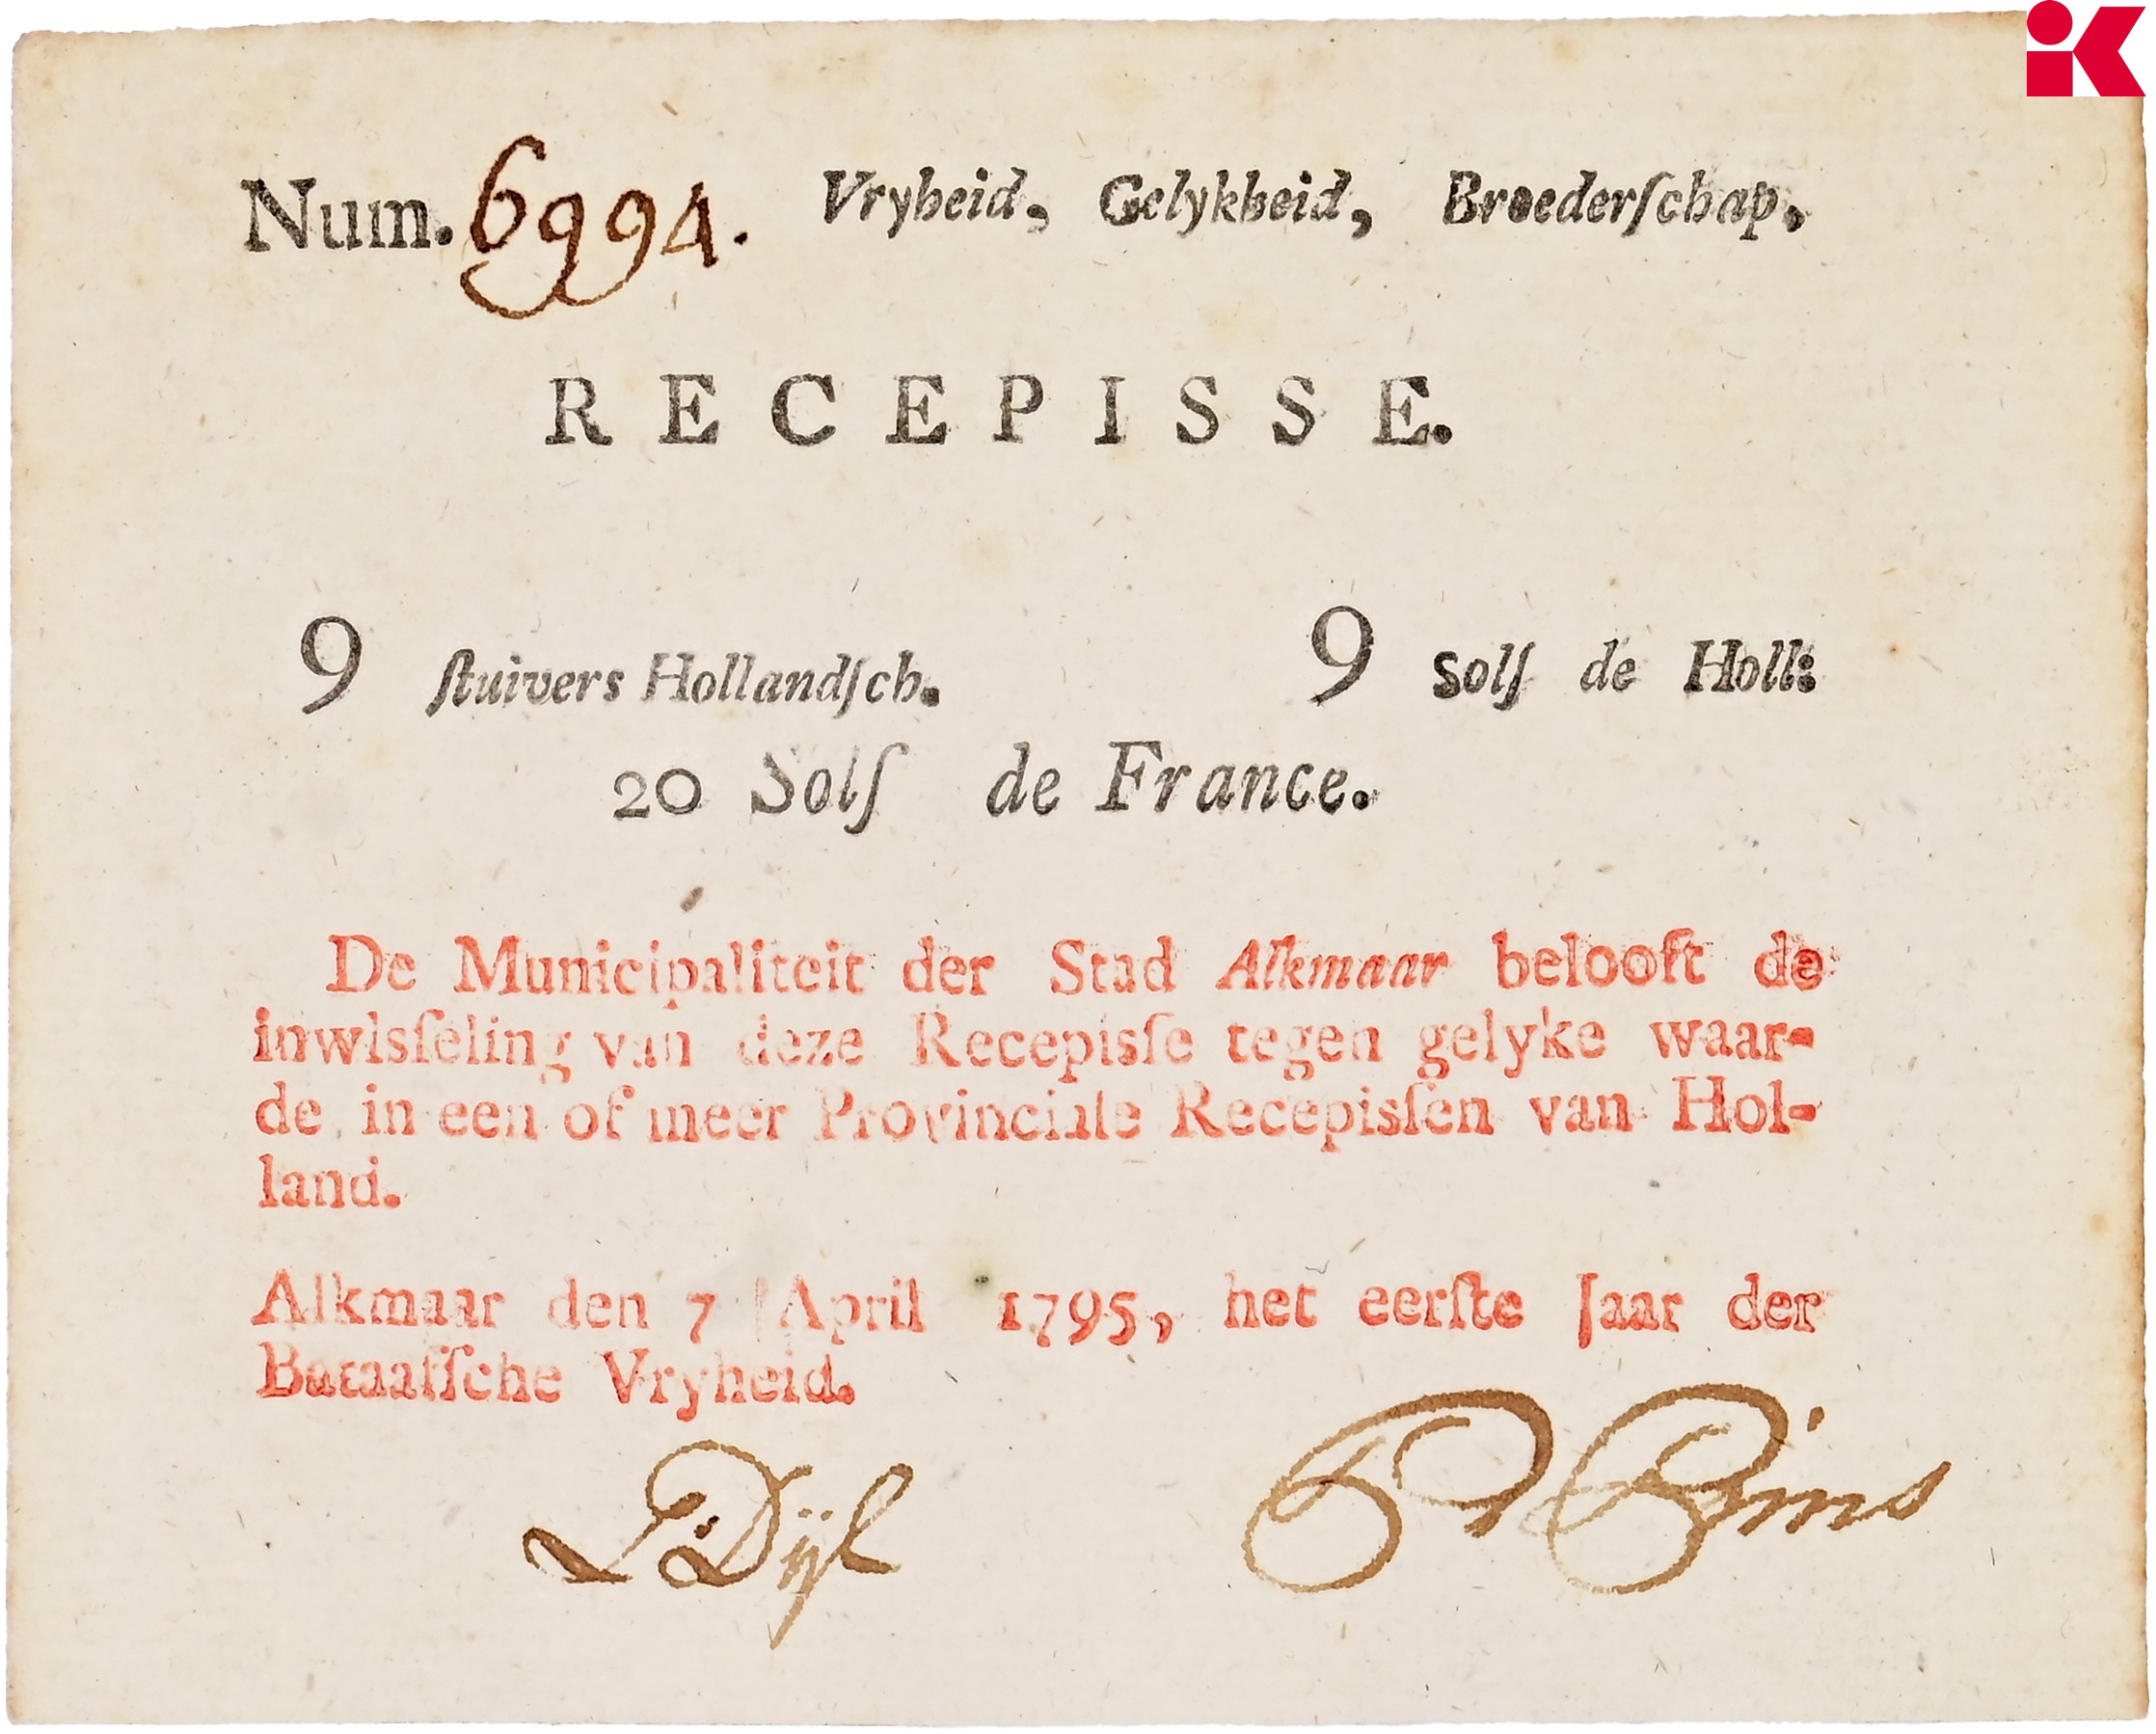 Num. 6994. Vryheid, Gelykheid, Broederſchap,
RECEPISSE.
9 ſtuivers Hollandſch. 9 Solſ de Holl:
20 Solſ de France.
De Municipaliteit der Stad Alkmaar belooft de
inwisſeling van deze Recepisſe tegen gelyke waar-
de in een of meer Provinciale Recepisſen van Hol-
land.
Alkmaar den 7 April 1795, het eerſte Jaar der
Bataafſche Vryheid.
Dijl